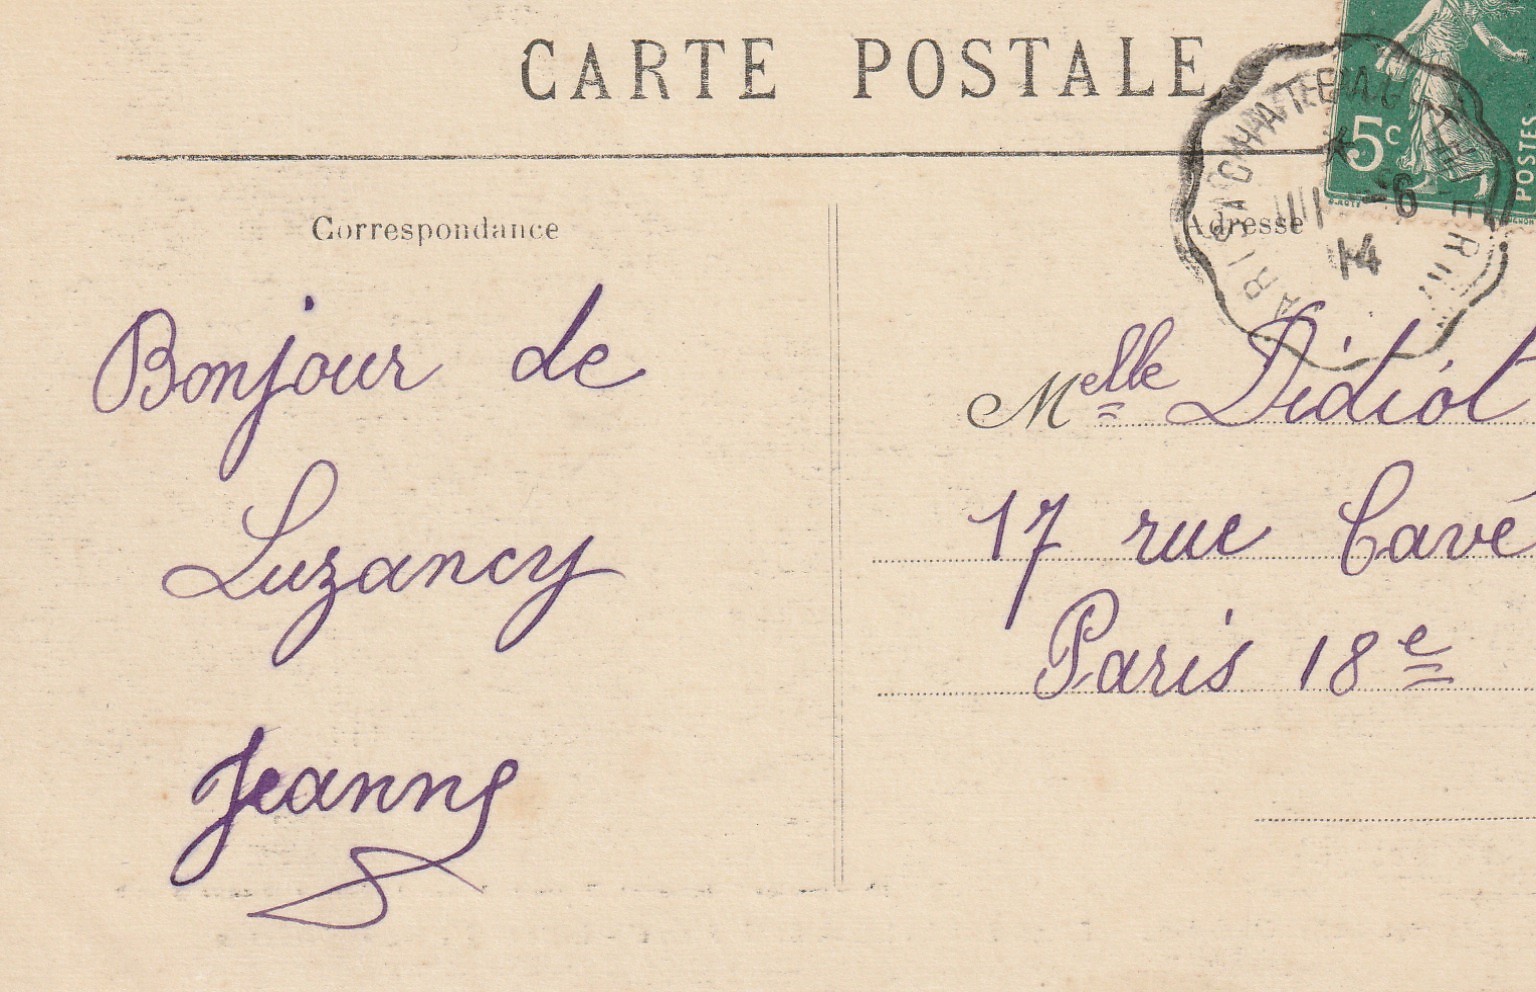 CARTE POSTALE
5c
POSTES
-6
14
Correspondance
Adresse
Bonjour de
Luzancy
Jeanne
Melle Didiot
17 rue Cavé
Paris 18e